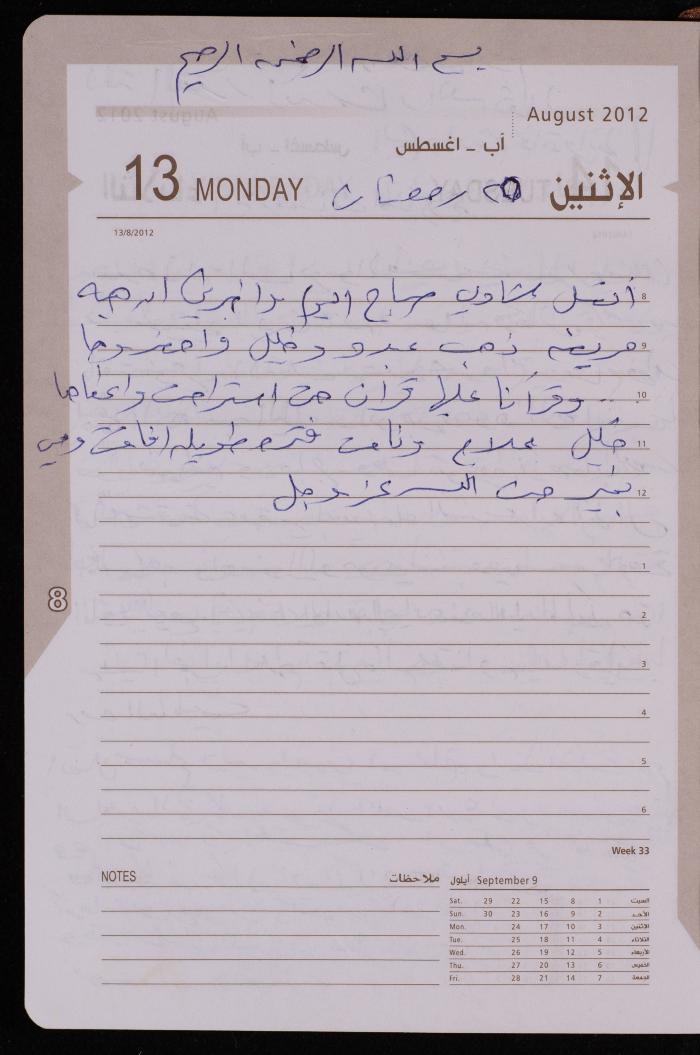 بسم الله الرحمن الرحيم
August 2012
آب - اغسطس
13 MONDAY ٢٥ رمضان الإثنين
13/8/2012
أتصل شاوي صباح اليوم وا خبرني
8
مريضه ذهب عبدو وخليل واحضروها
9
وقرآنا عليها قرآن حتى استراحت واعطاها
10
خليل علاج ونامت فتره طويله افاقت وهي
11
بخير حمد الله عز وجل
12
1
8
2
3
4
5
6
Week 33
NOTES ملاحظات
أيلول September 9
Sat. 29 22 15 8 1 السبت
Sun. 30 23 16 9 2 الأحد
Mon. 24 17 10 3 الإثنين
Tue. 25 18 11 4 الثلاثاء
Wed. 26 19 12 5 الأربعاء
Thu. 27 20 13 6 الخميس
Fri. 28 21 14 7 الجمعة